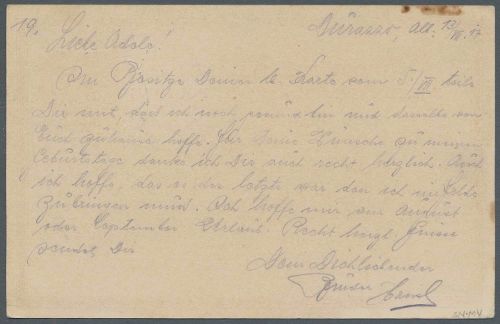 19.
Durazzo, Alb. 13/VII. 17
Liebe Adele!
Im Besitze Deiner l. Karte vom 5./VII teile
Dir mit, daß ich noch gesund bin und dasselbe von
Euch hoffe. Für Deine Wünsche zu meinem
Geburtstage danke ich Dir auch recht herzlich. Auch
ich hoffe, das es der letzte war den ich im
zubringen muß. Ich hoffe mir am August
oder September Urlaub. Recht herzl. Grüsse
sendet Dir
Dein Dichliebender
Bruder